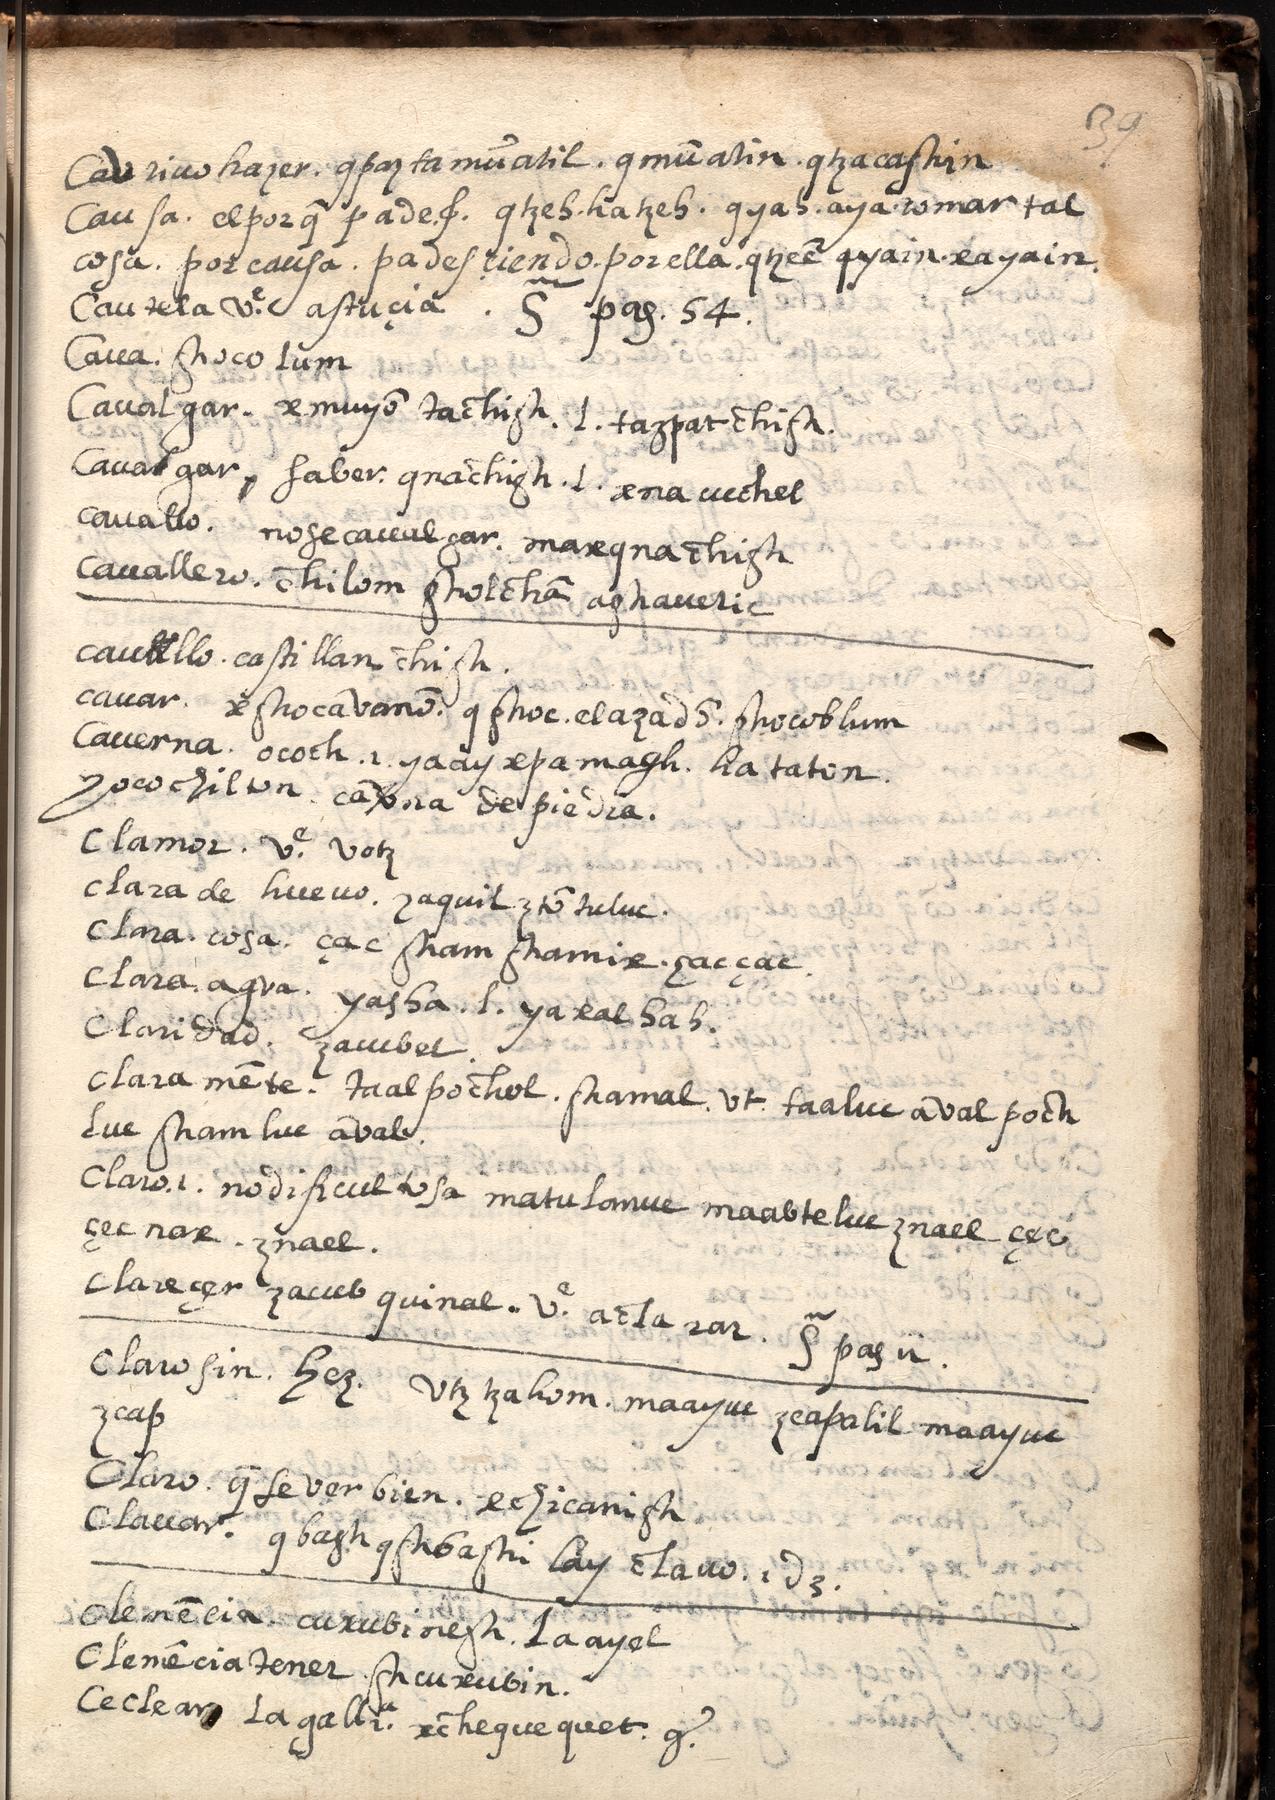 39
Cautiuo hazer. qpaz ta mūatil. q mūatin. qtzacashin
Causa. el porq̄ padesç. qtzeh. hatzeh. qyah. aya romar tal
cosa. por causa. padesçiendo. por ella. qtzeē qyain. xayain.
Cautela ve. astuçia. S̃ pag. 54.
Caua. shocolum
Caualgar. xmuyō tac̄high. l. tazpat c̄high.
Caualgar, saber. qnac̄high. l. xna uuc̄hel
cauallo. nose caualgar. maxqnac̄high
Cauallero. c̄hilom sholc̄hā aghaueric
cauallo. castillan c̄high.
cauar. xshocāvanō. q shoc. el azadō. shocoblum
Cauerna. ococh. l. yaay xpamagh. ha taton.
yocochilton. cauerna de piedra.
Clamor. ve. votz
clara de hueuo. zaquil ztōtuluc.
Clara. cosa. çac sham shamix. çacçac.
Clara. agua. yasha. l. yaxal hah.
Claridad. zacubel.
clara mēte. taal poc̄hol. shamal. vt. taaluc āval poc̄h
luc sham luc āval.
Claro. l. no dificultosa matulanuc maabteluc znael çec
çec nax. znael.
clareçer zacub quinal. ve. aclarar. S̃ pag ii.
Claro sin. hez. vtz tzahom. maayuc zcapalil maayuc
zcap
Claro. q̄ se ver bien. xchicanigh
Clauar. q bagh q shbashi lay c̄lauo. l dz.
clemēcia. cuxubinegh. laayel
Clemēcia tener shcuxubin.
Ceclear la gallia. xc̄hequequet. g.